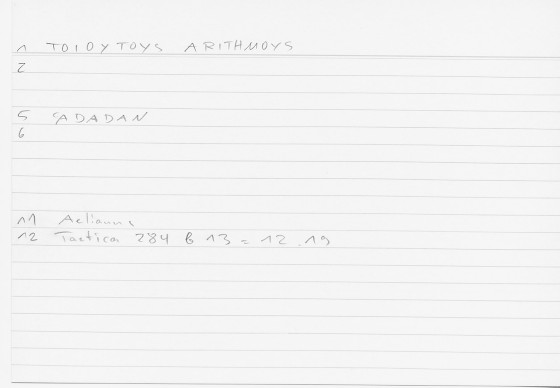 1 TOIOYTOYS ARITHMOYS
2
5 SADADAN
6
11 Aelianus
12 Tactica 284 B 13 = 12.19